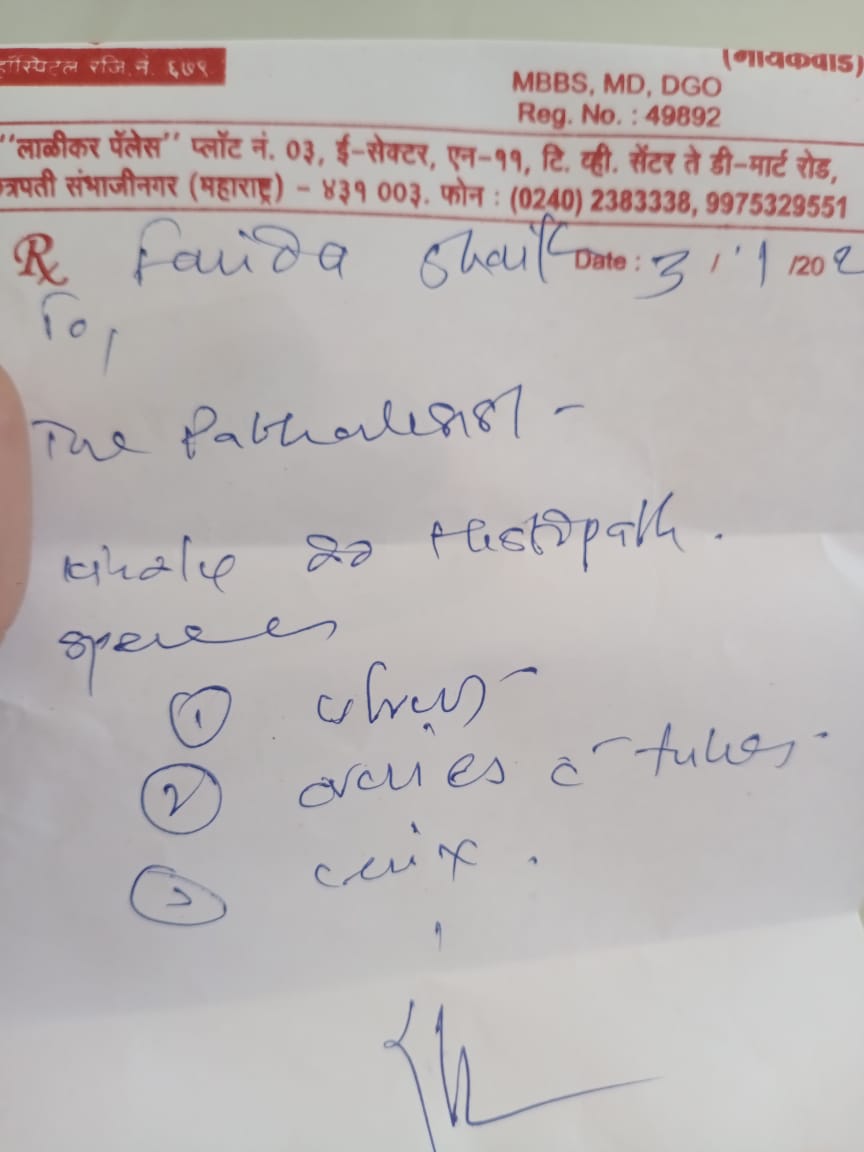 हॉस्पिटल रजि. नं. ६७९
(गायकवाड)
MBBS, MD, DGO
Reg. No. : 49892
"लाळीकर पॅलेस" प्लॉट नं. ०३, ई-सेक्टर, एन-११, टि. व्ही. सेंटर ते डी-मार्ट रोड,
त्रपती संभाजीनगर (महाराष्ट्र) - ४३१ ००३. फोन : (0240) 2383338, 9975329551
Rx Farida Shaikh Date : 3 / 1 /202
To,
The Pathologist -
Kindly do Histopath.
① uterus -
② ovaries c̄ tubes.
③ cervix.